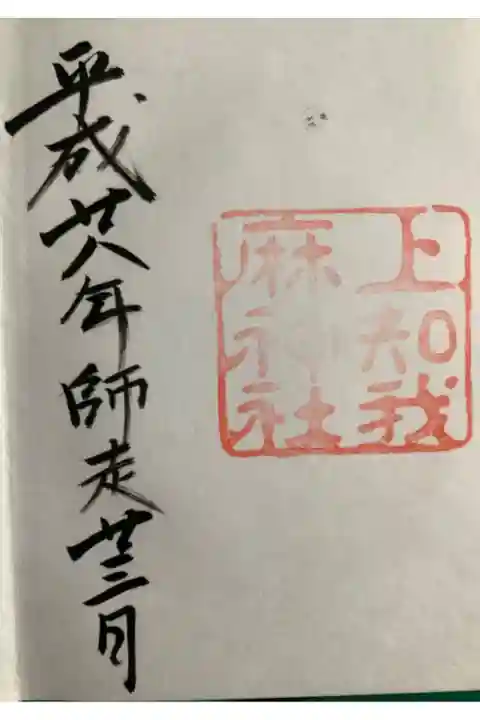 上知我
麻神社
平成廿八年師走廿三日